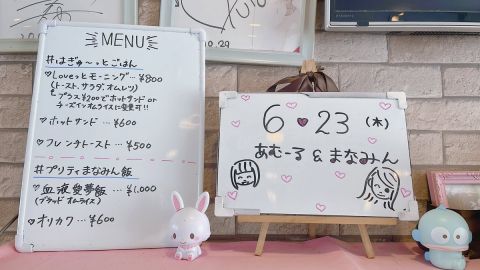 MENU
#はぎゅ〜っとごはん
Loveっとモーニング…¥800
(トースト、サラダ、オムレツ)
プラス¥200でホットサンド or
チーズインオムライスに変更可!!
ホットサンド…¥600
フレンチトースト…¥500
#プリティまなみん飯
血液愛夢飯…¥1,000
(ブラッド オムライス)
オリカク…¥600
6♥23(木)
あむーる & まなみん
20.29